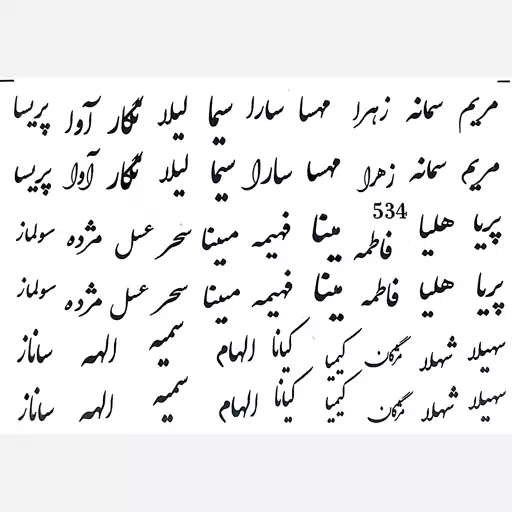 مریم سمانه زهرا مهسا سارا سیما لیلا نگار آوا پریسا
مریم سمانه زهرا مهسا سارا سیما لیلا نگار آوا پریسا
پریا هلیا فاطمه 534 مینا فهیمه مبینا سحر عسل مژده سولماز
پریا هلیا فاطمه مینا فهیمه مبینا سحر عسل مژده سولماز
سهیلا شهلا مژگان کیمیا کیانا الهام سمیه الهه ساناز
سهیلا شهلا مژگان کیمیا کیانا الهام سمیه الهه ساناز